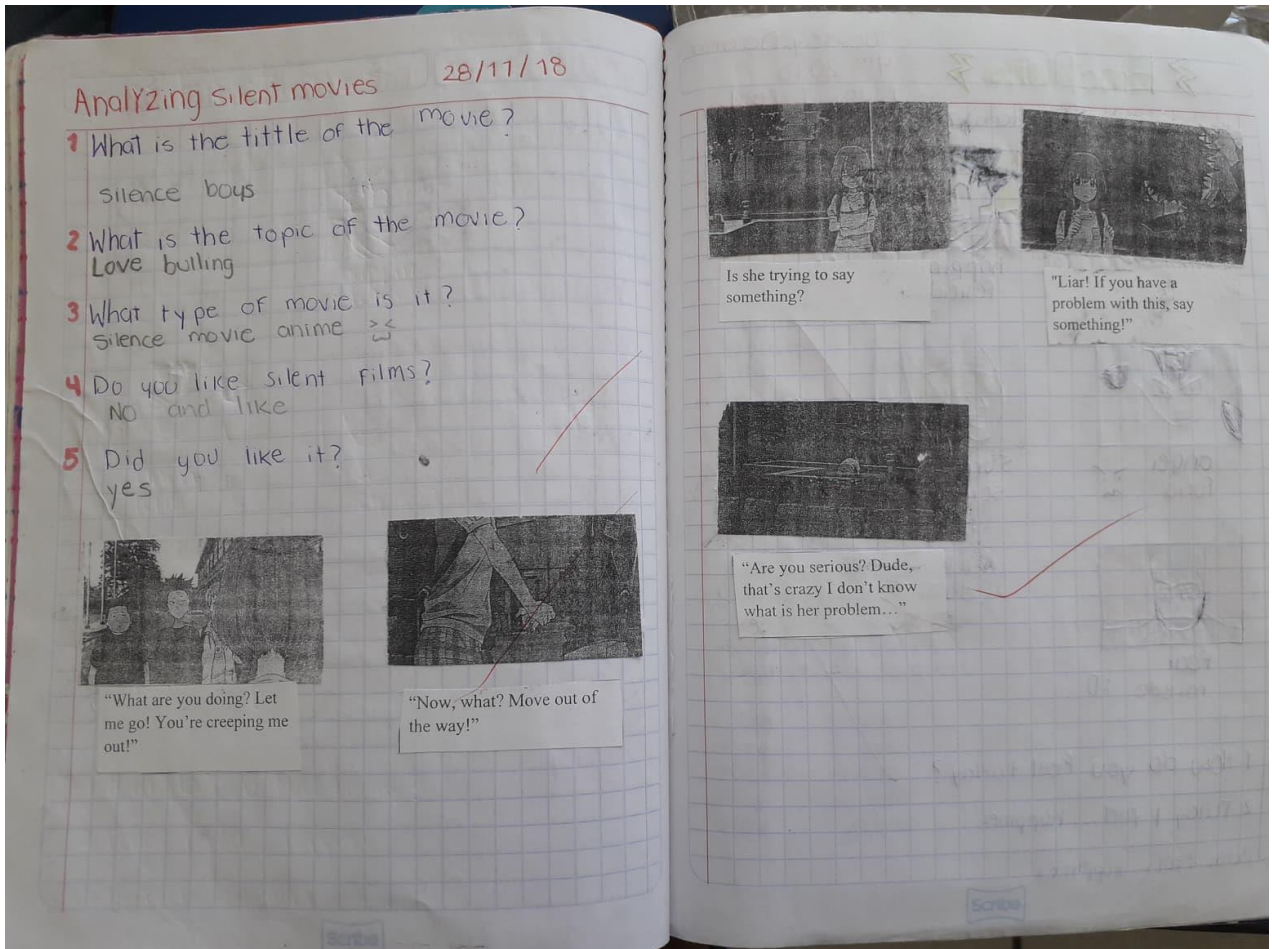 Analyzing silent movies 28/11/18
1 What is the tittle of the movie?
silence boys
2 What is the topic of the movie?
Love bulling
3 What type of movie is it?
Silence movie anime
4 Do you like silent films?
No and like
5 Did you like it?
yes
“What are you doing? Let
me go! You’re creeping me
out!”
“Now, what? Move out of
the way!”
Scribe
Is she trying to say
something?
"Liar! If you have a
problem with this, say
something!”
“Are you serious? Dude,
that’s crazy I don’t know
what is her problem…”
Scribe